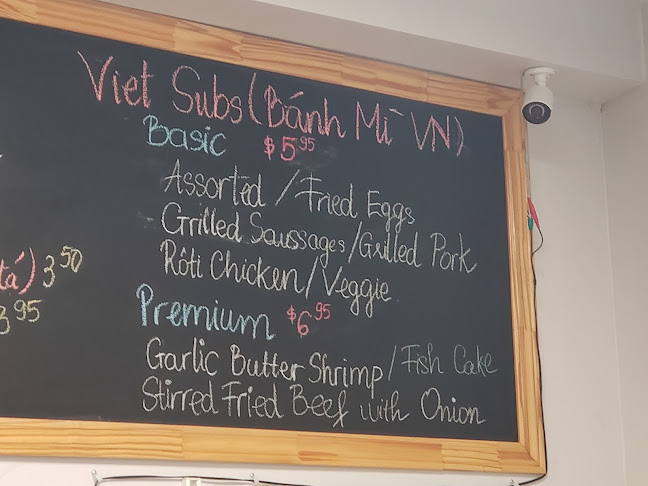 Viet Subs (Bánh Mì VN)
Basic $5.95
Assorted / Fried Eggs
Grilled Saussages / Grilled Pork
Rôti Chicken / Veggie
tá) 3.50
3.95
Premium $6.95
Garlic Butter Shrimp / Fish Cake
Stirred Fried Beef with Onion